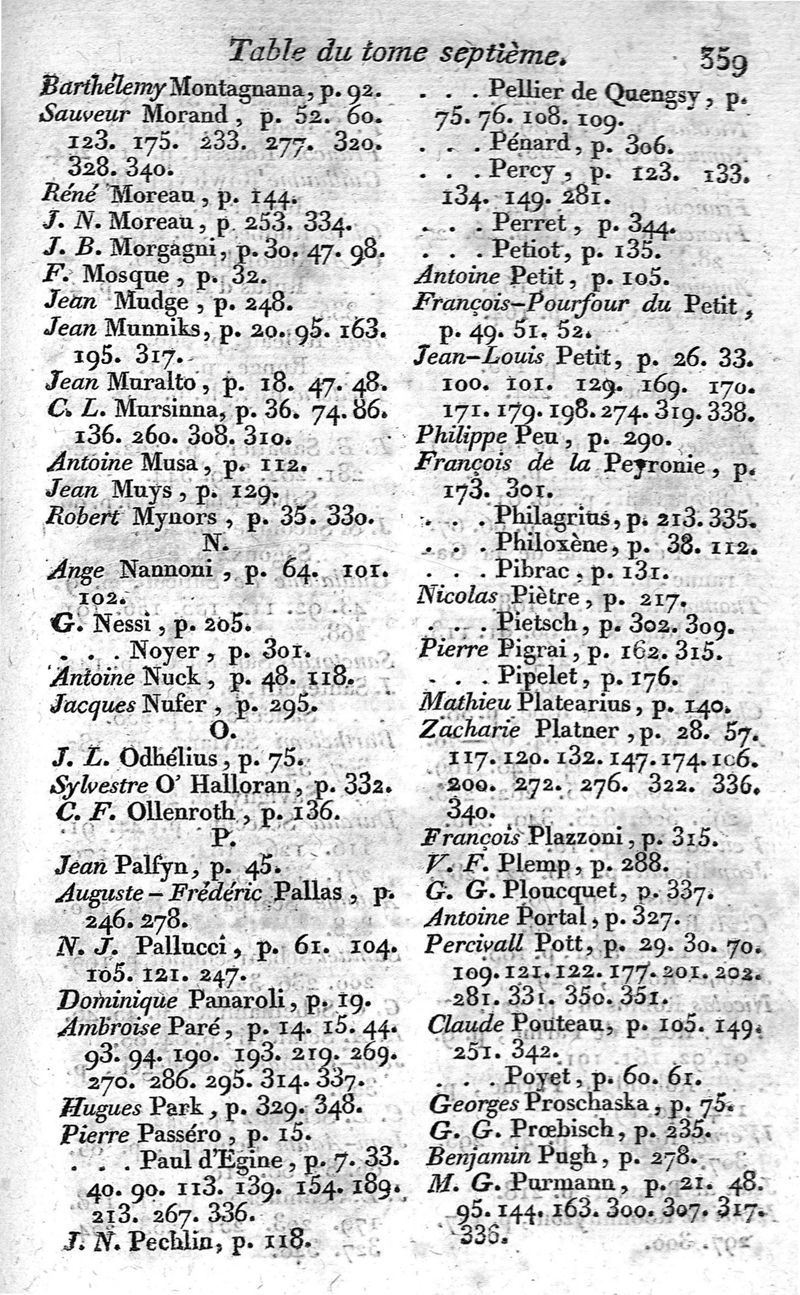 Table du tome septième. 359
Barthélemy Montagnana, p. 92.
Sauveur Morand, p. 52. 60.
123. 175. 233. 277. 320.
328. 340.
Réné Moreau, p. 144.
J. N. Moreau, p. 253. 334.
J. B. Morgagni, p. 30. 47. 98.
F. Mosque, p. 32.
Jean Mudge, p. 248.
Jean Munniks, p. 20. 95. 163.
195. 317.
Jean Muralto, p. 18. 47. 48.
C. L. Mursinna, p. 36. 74. 86.
136. 260. 308. 310.
Antoine Musa, p. 112.
Jean Muys, p. 129.
Robert Mynors, p. 35. 330.
N.
Ange Nannoni, p. 64. 101.
102.
G. Nessi, p. 205.
. . . Noyer, p. 301.
Antoine Nuck, p. 48. 118.
Jacques Nufer, p. 295.
O.
J. L. Odhélius, p. 75.
Sylvestre O' Halloran, p. 332.
C. F. Ollenroth, p. 136.
P.
Jean Palfyn, p. 45.
Auguste-Frédéric Pallas, p.
246. 278.
N. J. Pallucci, p. 61. 104.
105. 121. 247.
Dominique Panaroli, p. 19.
Ambroise Paré, p. 14. 15. 44.
93. 94. 190. 193. 219. 269.
270. 286. 295. 314. 337.
Hugues Park, p. 329. 348.
Pierre Passéro, p. 15.
. . . Paul d'Egine, p. 7. 33.
40. 90. 113. 139. 154. 189.
213. 267. 336.
J. N. Pechlin, p. 118.
. . . Pellier de Quengsy, p.
75. 76. 108. 109.
. . . Pénard, p. 306.
. . . Percy, p. 123. 133.
134. 149. 281.
. . . Perret, p. 344.
. . . Petiot, p. 135.
Antoine Petit, p. 105.
François-Pourfour du Petit,
p. 49. 51. 52.
Jean-Louis Petit, p. 26. 33.
100. 101. 129. 169. 170.
171. 179. 198. 274. 319. 338.
Philippe Peu, p. 290.
François de la Peyronie, p.
173. 301.
. . . Philagrius, p. 213. 335.
. . . Philoxène, p. 38. 112.
. . . Pibrac, p. 131.
Nicolas Piètre, p. 217.
. . . Pietsch, p. 302. 309.
Pierre Pigrai, p. 162. 315.
. . . Pipelet, p. 176.
Mathieu Platearius, p. 140.
Zacharie Platner, p. 28. 57.
117. 120. 132. 147. 174. 106.
200. 272. 276. 322. 336.
340.
François Plazzoni, p. 315.
V. F. Plemp, p. 288.
G. G. Ploucquet, p. 337.
Antoine Portal, p. 327.
Percivall Pott, p. 29. 30. 70.
109. 121. 122. 177. 201. 202.
281. 331. 350. 351.
Claude Pouteau, p. 105. 149.
251. 342.
. . . Poyet, p. 60. 61.
Georges Proschaska, p. 75.
G. G. Prœbisch, p. 235.
Benjamin Pugh, p. 278.
M. G. Purmann, p. 21. 48.
95. 144. 163. 300. 307. 317.
336.